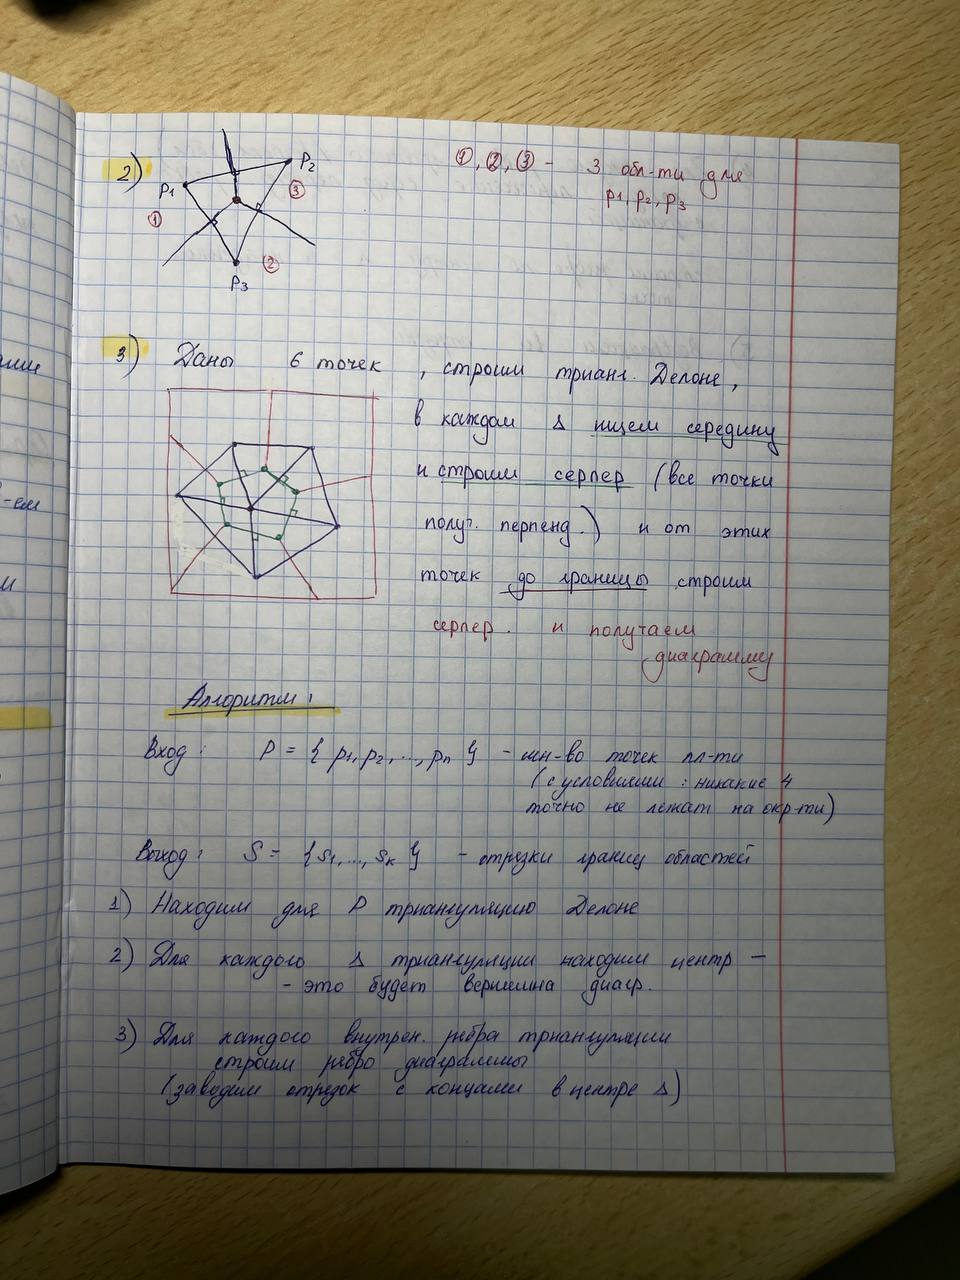 2)
P₁
P₂
P₃
①
②
③
①, ②, ③ - 3 обл-ти для
P₁, P₂, P₃
3) Даны 6 точек, строим трианг. Делоне,
в каждом Δ ищем середину
и строим серпер (все точки
полуг. перпенд.) и от этих
точек до границы строим
серпер. и получаем
диаграмму
Алгоритм:
Вход: P = { p₁, p₂, ..., pₙ } - мн-во точек пл-ти
(с условиями: никакие 4
точно не лежат на окр-ти)
Выход: S = { s₁, ..., sₖ } - отрезки границ областей
1) Находим для P триангуляцию Делоне
2) Для каждого Δ триангуляции находим центр -
- это будет вершина диагр.
3) Для каждого внутрен. ребра триангуляции
строим ребро диаграммы
(заводим отрезок с концами в центре Δ)